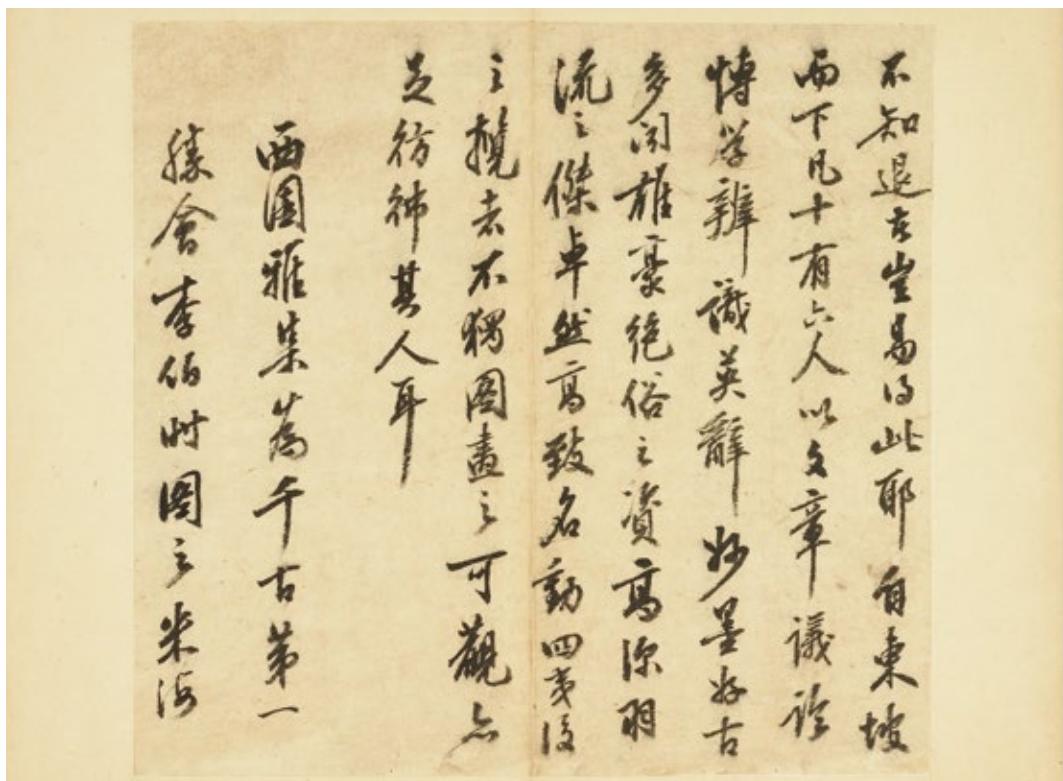 不知退者豈易得此耶自東坡
而下凡十有六人以文章議論
博學辨識英辭妙墨好古
多聞雄豪絕俗之資高深羽
流之傑卓然高致名動四夷後
之攬者不獨圖畫之可觀亦
足彷彿其人耳
西園雅集為千古第一
勝會李伯時圖之米海